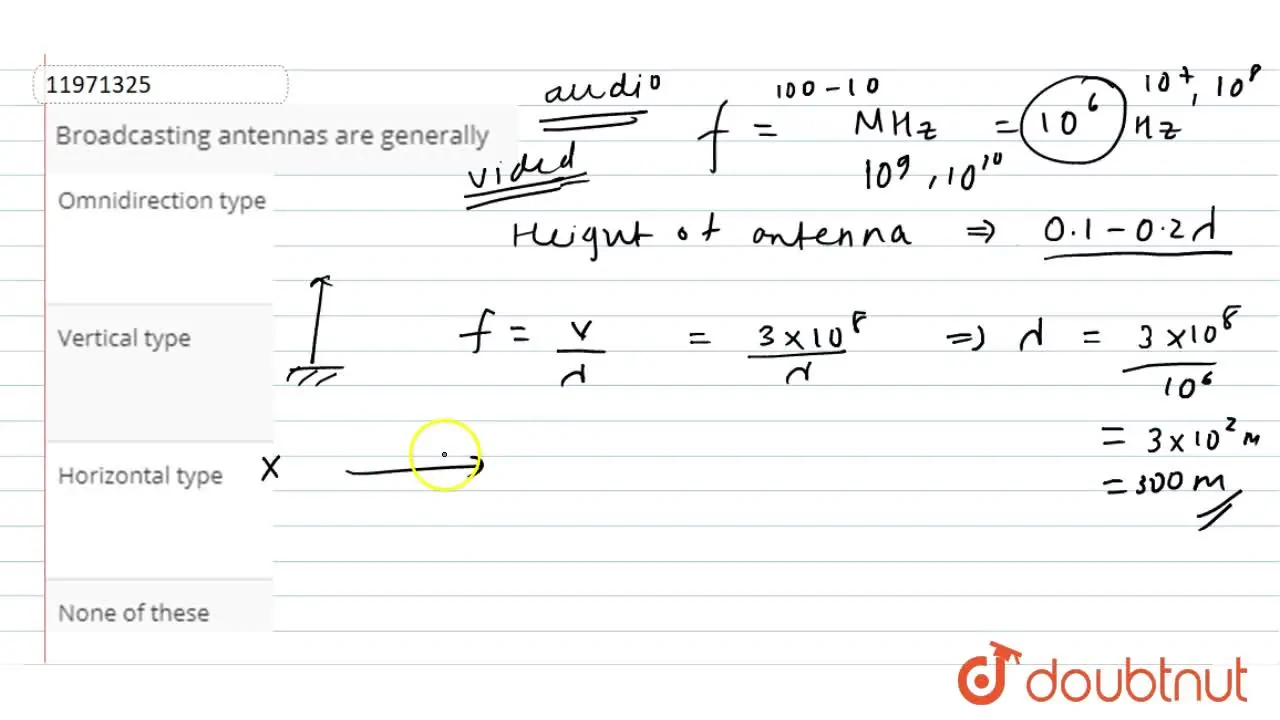 11971325
Broadcasting antennas are generally
Omnidirection type
Vertical type
Horizontal type X
None of these
audio
video
f = 100 - 10 MHz = 10⁶ Hz 10⁷, 10⁸
10⁹, 10¹⁰
Height of antenna ⇒ 0.1 - 0.2 λ
f = v/λ = 3 × 10⁸/λ ⇒ λ = 3 × 10⁸/10⁶
= 3 × 10² m
= 300 m
doubtnut